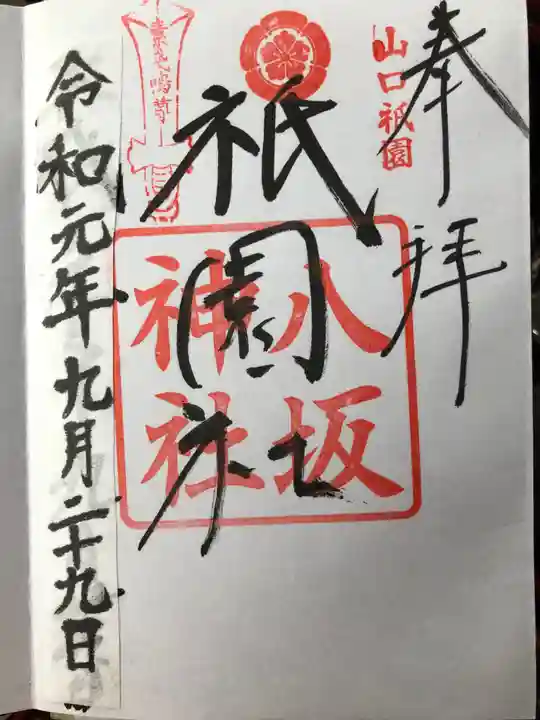 奉拝
山口祇園
祇園社
八坂
神社
令和元年九月二十九日